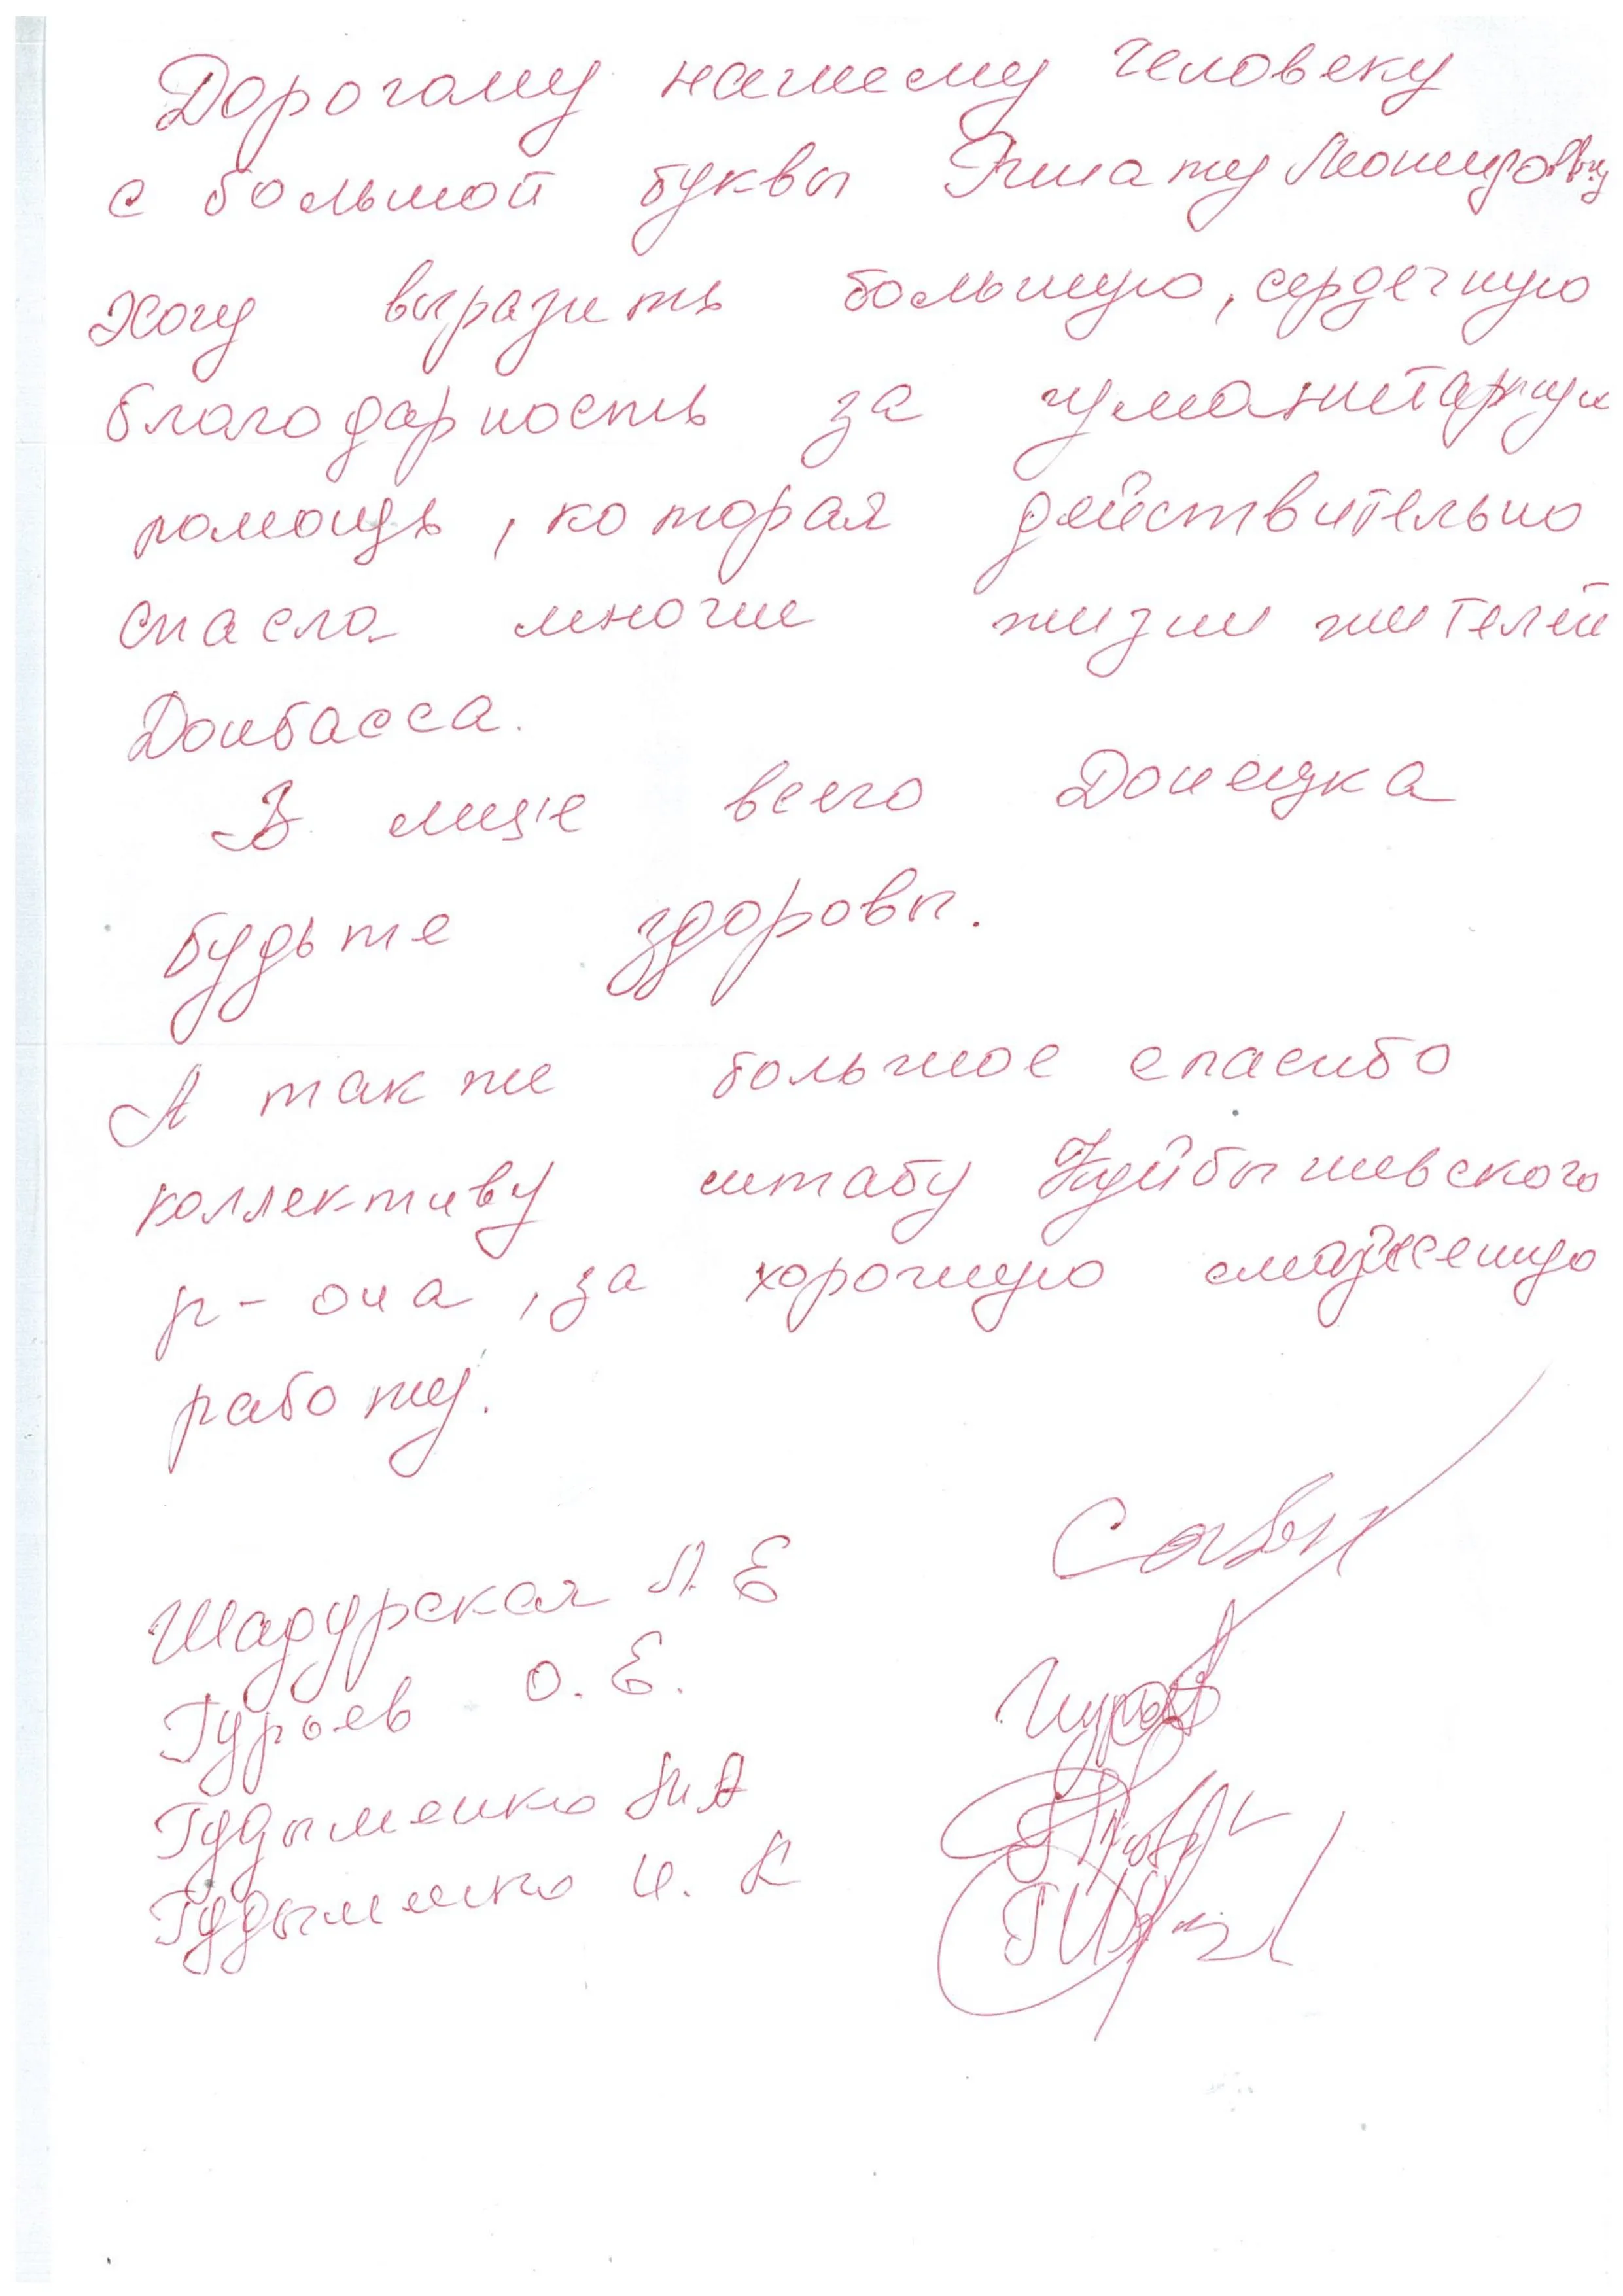 Дорогому нашему человеку
с большой буквы Ринату Леонидовичу
Хочу выразить большую, сердечную
благодарность за гуманитарную
помощь, которая действительно
спасла многие жизни жителей
Донбасса.
В лице всего Донецка
будьте здоровы.
А также большое спасибо
коллективу штабу Куйбышевского
р-она, за хорошую слаженную
работу.
Шадурская Л. Е
Гурьев О. Е.
Гудыменко
Гудыменко И. К